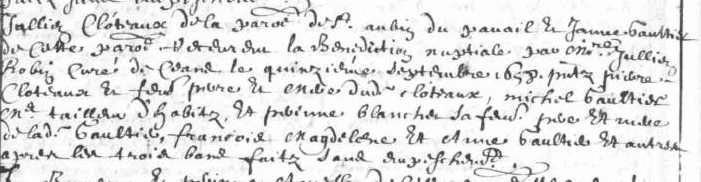 Jullien Cloteaux de la paroe de St aubin du pavail et Janne Gaultier
de Cette paroe receurent la Benediction nuptiale par Mre Jullien
Robin Curé de le quinziéme Septembre pntz pierre
Cloteaux et pere et mere dud. cloteaux, michel Gaultier
me tailleur d'habitz, et perinne blanchet sa feme pere et mere
de lade Gaultier, francoise magdelene et anne Gaultier et autres
apres les trois bans faitz sans empeschemt